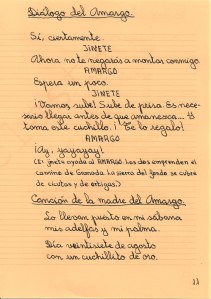 Diálogo del Amargo.
Sí, ciertamente.
JINETE
Ahora no te negarás a montar conmigo.
AMARGO
Espera un poco.
JINETE
¡Vamos sube! Sube de prisa. Es nece-
sario llegar antes de que amanezca... Y
toma este cuchillo. ¡Te lo regalo!
AMARGO
¡Ay, yayayay!
(El jinete ayuda al AMARGO. Los dos emprenden el
camino de Granada. La sierra del fondo se cubre
de cicutas y de ortigas.)
Canción de la madre del Amargo.
Lo llevan puesto en mi sábana
mis adelfas y mi palma.
Día veintisiete de agosto
con un cuchillito de oro.